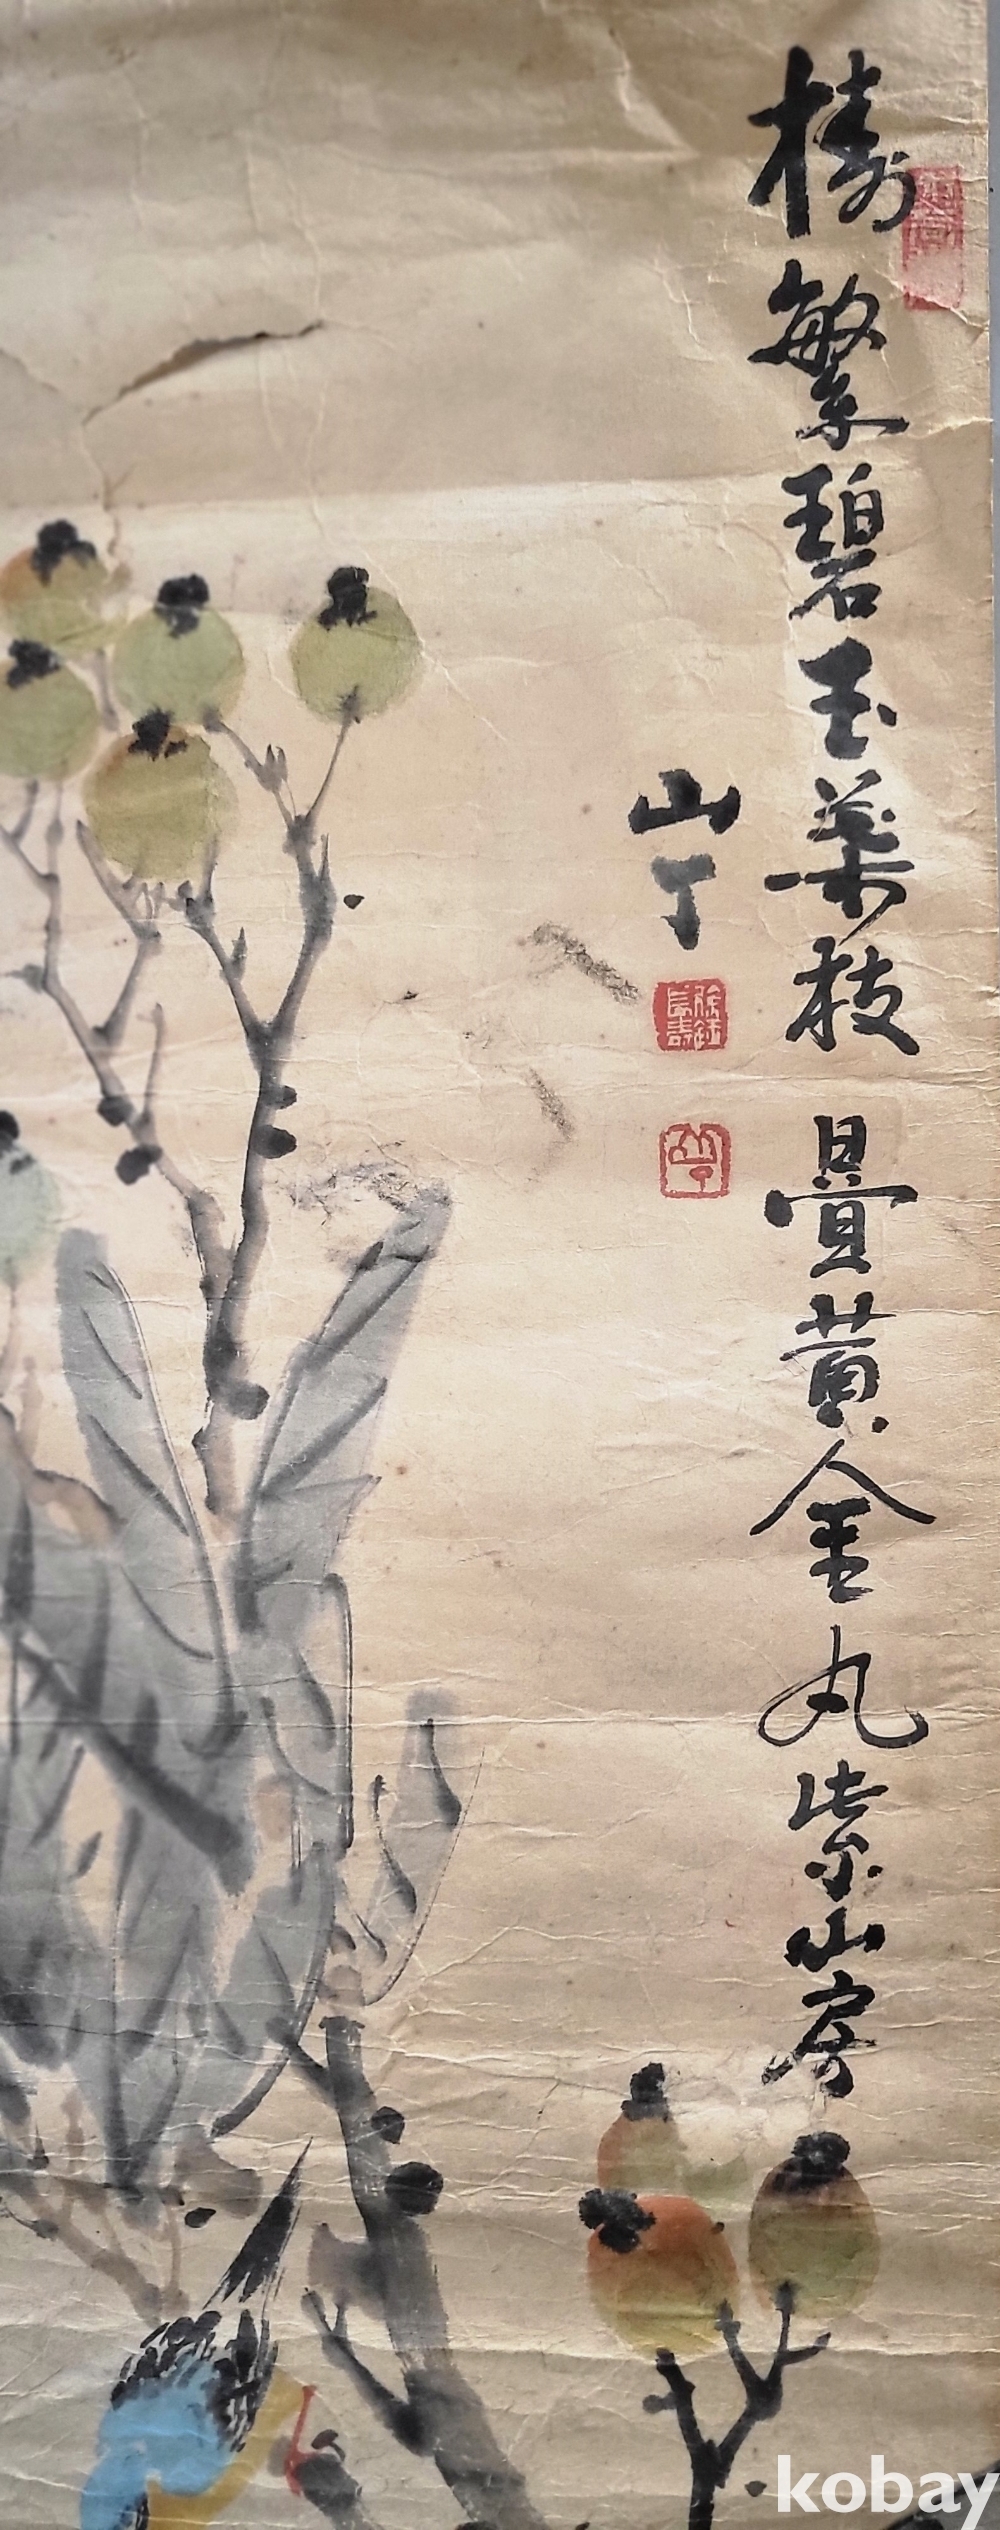 樹繁碧玉葉枝疊黃金丸紫山房
山丁
kobay